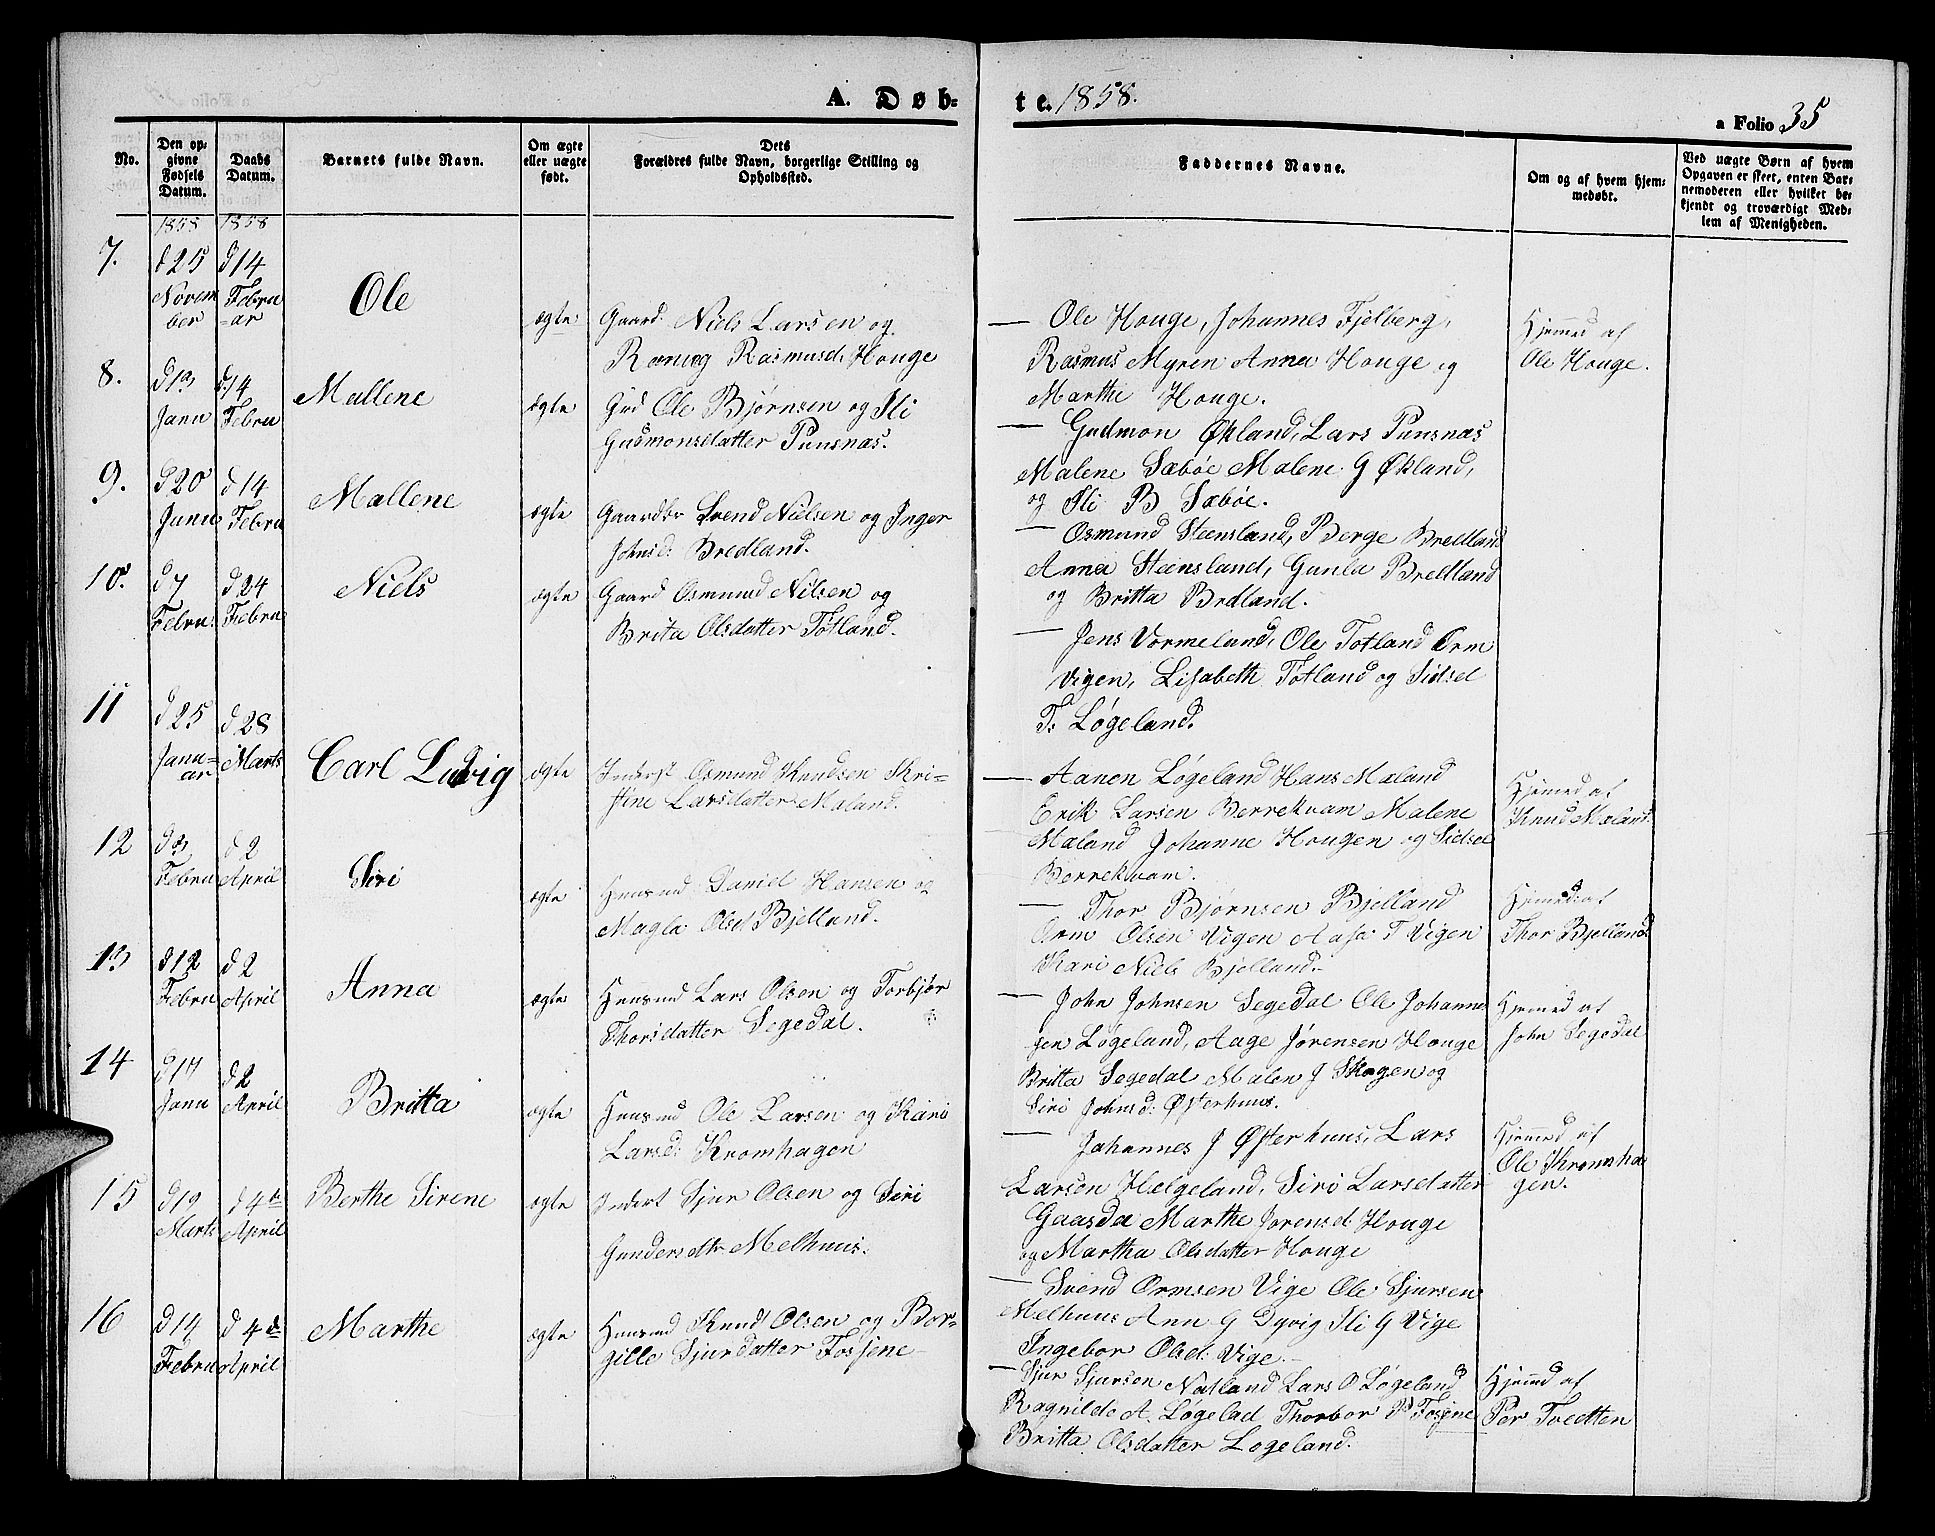 A. Døb=
te. 1858.
a Folio 35
No.
Den op=
givne
Fødsels
Datum.
Daabs
Datum.
Barnets fulde Navn.
Om ægte
eller uægte
født.
Dets
Forældres fulde Navn, borgerlige Stilling og
Opholdssted.
Faddernes Navne.
Om og af hvem hjem=
medøbt.
Ved uægte Børn af hvem
Opgaven er skeet, enten Bar=
nemoderen eller hvilket be=
kjendt og troværdigt Med=
lem af Menigheden.
1858 1858
7.
d 25
Novem
ber
d 14
Febru
=ar
Ole
ægte
Gaard. Niels Larsen og
Rasmusd. Houge
— Ole Houge, Johannes Fjelberg,
Rasmus Myren Anna Houge og
Marthe Houge.
Hjemed af
Ole Houge.
8.
Janu
d. 14
Febru
Mallene
ægte
Gud Ole Bjørnsen og Sli
Gudmonsdatter Punsnæs.
— Gudmon Økland, Lars Punsnæs
Malene Sæbøe Malene G Økland,
og Sli B Sæbøe.
9.
d 20
Janu
d 14
Febru
Mallene
ægte
Gaardbr Svend Nielsen og Inger
Johnsd: Bredland.
— Osmund Steensland, Berge Bredland
Anna Steensland, Gunla Bredland
og Britta Bredland.
10.
d 7
Febru.
d 24
Febru
Niels
ægte
Gaard Osmund Nilsen og
Brita Olsdatter Tøtland.
— Jens Vormeland, Ole Totland Orm
Vigen, Lisabeth Tøtland og Sidsel
T. Løgeland.
11
d 25
Janu=
ar
d 28
Marts
Carl Ludvig
ægte
Inderst Osmund Knudsen Kri=
stine Larsdatter Mæland.
— Aanen Løgeland Hans Mæland
Erik Larsen Berrekvam Malene
Mæland Johanne Hougen og Sidsel
Berrekvam.
Hjemed af
Knud Mæland.
12
Febru
d 2
April
Siri
ægte
Huusmd Daniel Hansen og
Magla Olsd Bjelland.
— Thor Bjørnsen Bjelland
Orm Olsen Vigen Aasa T Vigen
Kari Niels Bjelland.
Hjemed: af
Thor Bjelland
13
d 12
Febru
d 2
April
Anna
ægte
Huusmd Lars Olsen og Torbjør
Thorsdatter Segedal.
— John Johnsen Segedal Ole Johanne
sen Løgeland, Aage Jørensen Houge
Britta Segedal Malen J Skogen og
Siri Johnsd: Østerhuus.
Hjemed af
John Segedal
14
Janu
d 2
April
Britta
ægte
Huusmd Ole Larsen og Kari
Larsd: Kromhagen
— Johannes J Østerhuus, Lars
Larsen Hælgeland, Siri Larsdatter
Gaasda Marthe Jorensd Houge
og Martha Olsdatter Houge
Hjemed af
Ole Kromha
gen.
15
d 19
Marts
d 4de
April
Berthe Sirene
ægte
Inderst Sjur Olsen og Siri
Gunders dtr Melhuus.
— Svend Ormsen Vige Ole Sjursen
Melhuus Ann G Dyvig Sli G Vige
Ingebor Olsd: Vige.
16
d 14
Febru
d 4de
April
Marthe
ægte
Huusmd Knud Olsen og Bor=
gille Sjurdatter Fossene
— Sjur Sjursen Natland Lars O Løgeland
Ragnilde A. Løgelad Thorbor P Fosene
Britta Olsdatter Løgeland.
Hjemed af
Per Tvedten